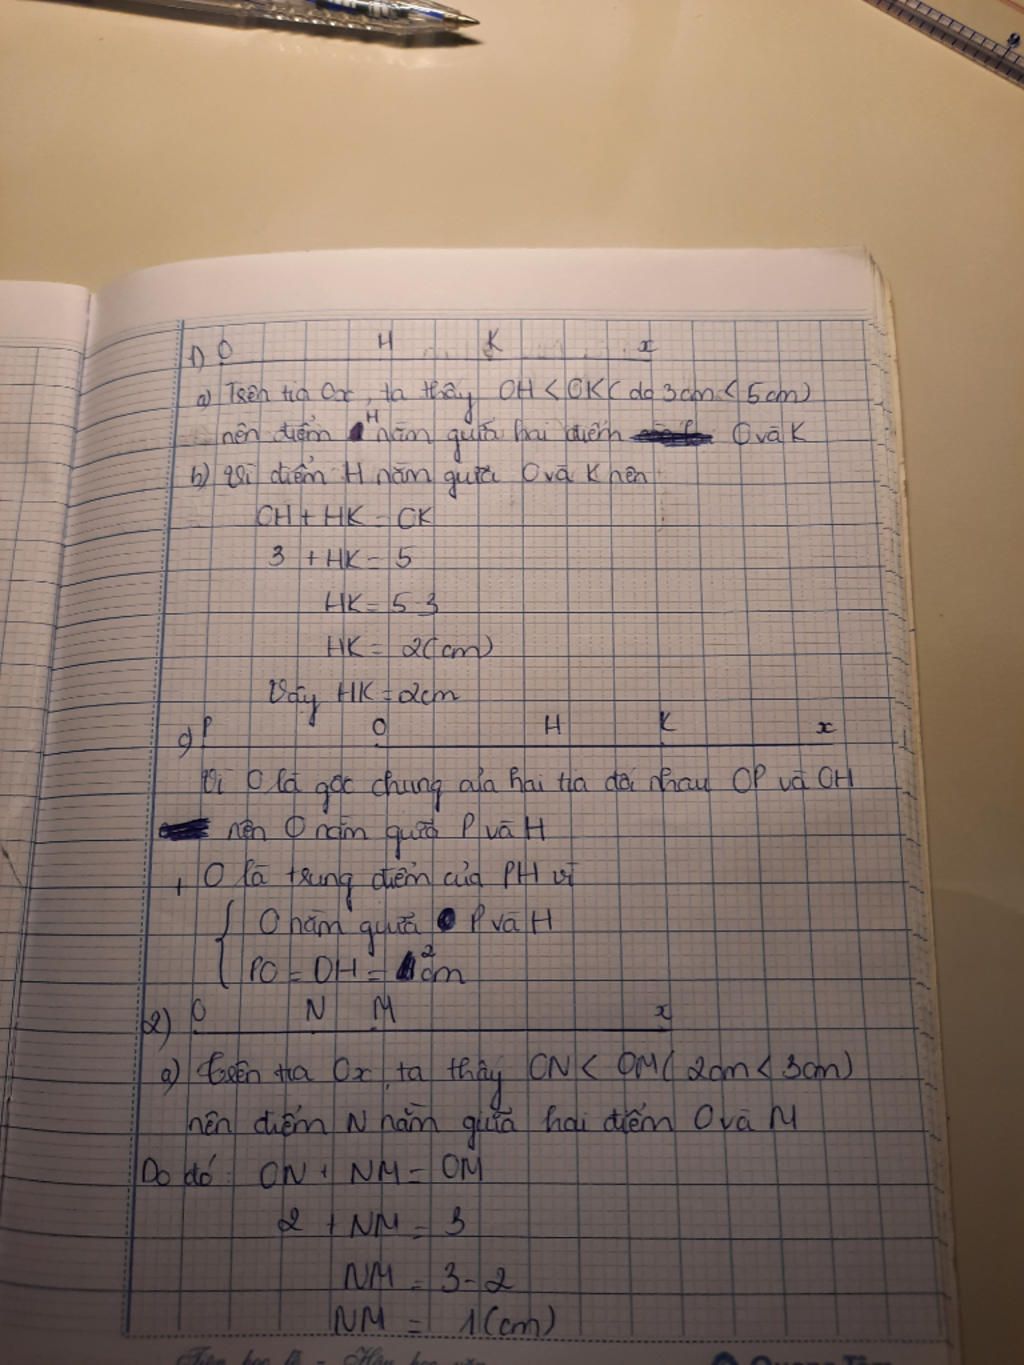 1) O H K x
a) Trên tia Ox, ta thấy OH < OK ( do 3cm < 5cm)
nên điểm H nằm giữa hai điểm O và K
b) Vì điểm H nằm giữa O và K nên
OH + HK = OK
3 + HK = 5
HK = 5-3
HK = 2(cm)
Vậy HK = 2cm
c) P O H K x
Vì O là gốc chung của hai tia đối nhau OP và OH
nên O nằm giữa P và H
+ O là trung điểm của PH vì
O nằm giữa P và H
PO = OH = 2cm
2) O N M x
a) Trên tia Ox, ta thấy ON < OM ( 2cm < 3cm)
nên điểm N nằm giữa hai điểm O và M
Do đó: ON + NM = OM
2 + NM = 3
NM = 3-2
NM = 1(cm)